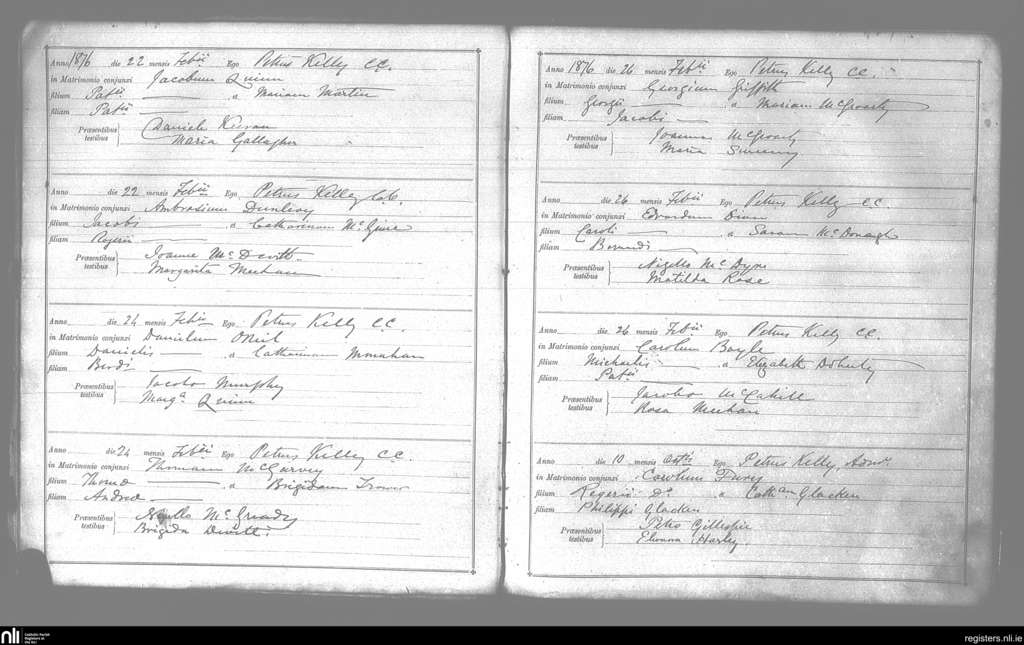 Anno 1876 die 22 mensis Febii Ego Petrus Kelly CC.
in Matrimonio conjunxi Jacobum Quinn
filium Patii a Mariam Martin
filiam Patii
Præsentibus testibus
Daniele Keevan
Maria Gallagher
Anno die 22 mensis Febii Ego Petrus Kelly
in Matrimonio conjunxi Ambrosium Dunlevy
filium Jacobi a Catharinam
filiam Rogerii
Præsentibus testibus
Joanne McDevitt
Margarita Meehan
Anno die 24 mensis Febii Ego Petrus Kelly C.C.
in Matrimonio conjunxi Danielum ONeil
filium Danielis a Catharinam Monahan
filiam
Præsentibus testibus
Jacobo Murphy
Marga Quinn
Anno die 24 mensis Febii Ego Petrus Kelly C.C.
in Matrimonio conjunxi Thomam McGarvey
filium Thomæ a Brigidam
filiam Andreæ
Præsentibus testibus
McGready
Brigida Devitt
Anno 1876 die 26 mensis Febii Ego Petrus Kelly CC.
in Matrimonio conjunxi Georgium Griffith
filium Georgii a Mariam McGroarty
filiam Jacobi
Præsentibus testibus
Joanna McGroarty
Maria Sweeny
Anno die 26 mensis Febii Ego Petrus Kelly CC
in Matrimonio conjunxi Edvardum
filium Caroli a Saram McDonagh
filiam Bernardi
Præsentibus testibus
Nigello McDyre
Matilda Rose
Anno die 26 mensis Febii Ego Petrus Kelly CC.
in Matrimonio conjunxi Carolum Boyle
filium Michaelis a Elizabeth Doherty
filiam Patii
Præsentibus testibus
Jacobo McCahill
Rosa Meehan
Anno die 10 mensis Ego Petrus Kelly, Admr.
in Matrimonio conjunxi Carolum Furey
filium Rogerii Do a Cathan Glacken
filiam Philippi Glacken
Præsentibus testibus
Petro Gillespie
Eleanora Harley.
nli
Catholic Parish
Registers at
the NLI
registers.nli.ie